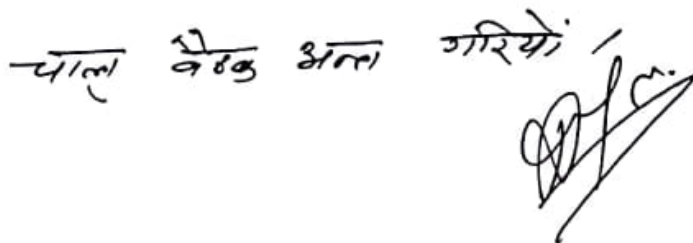 चालु बैठक अन्त गरियो।